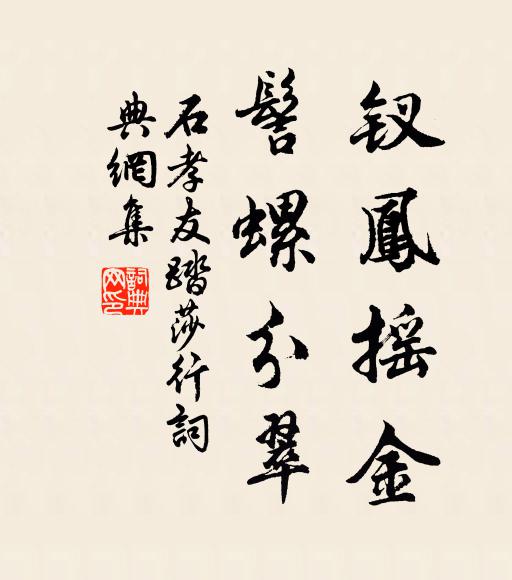 钗鳳摇金
髻螺分翠
石孝友踏莎行詞
典網集
詞典
网印